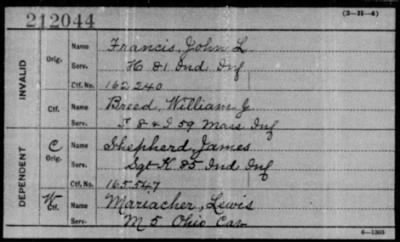 212044
(3-21-4)
INVALID
Orig.
Name Francis, John L.
Serv. H 81 Ind Inf
Ctf. No. 162240
Ctf.
Name Breed, William J.
Serv. & I 59 Mass Inf
DEPENDENT
C Orig.
Name Shepherd, James
Serv. Sgt K 85 Ind Inf
Ctf. No. 165547
W Ctf.
Name Mariacher, Lewis
Serv. M 5 Ohio Cav
6-1303